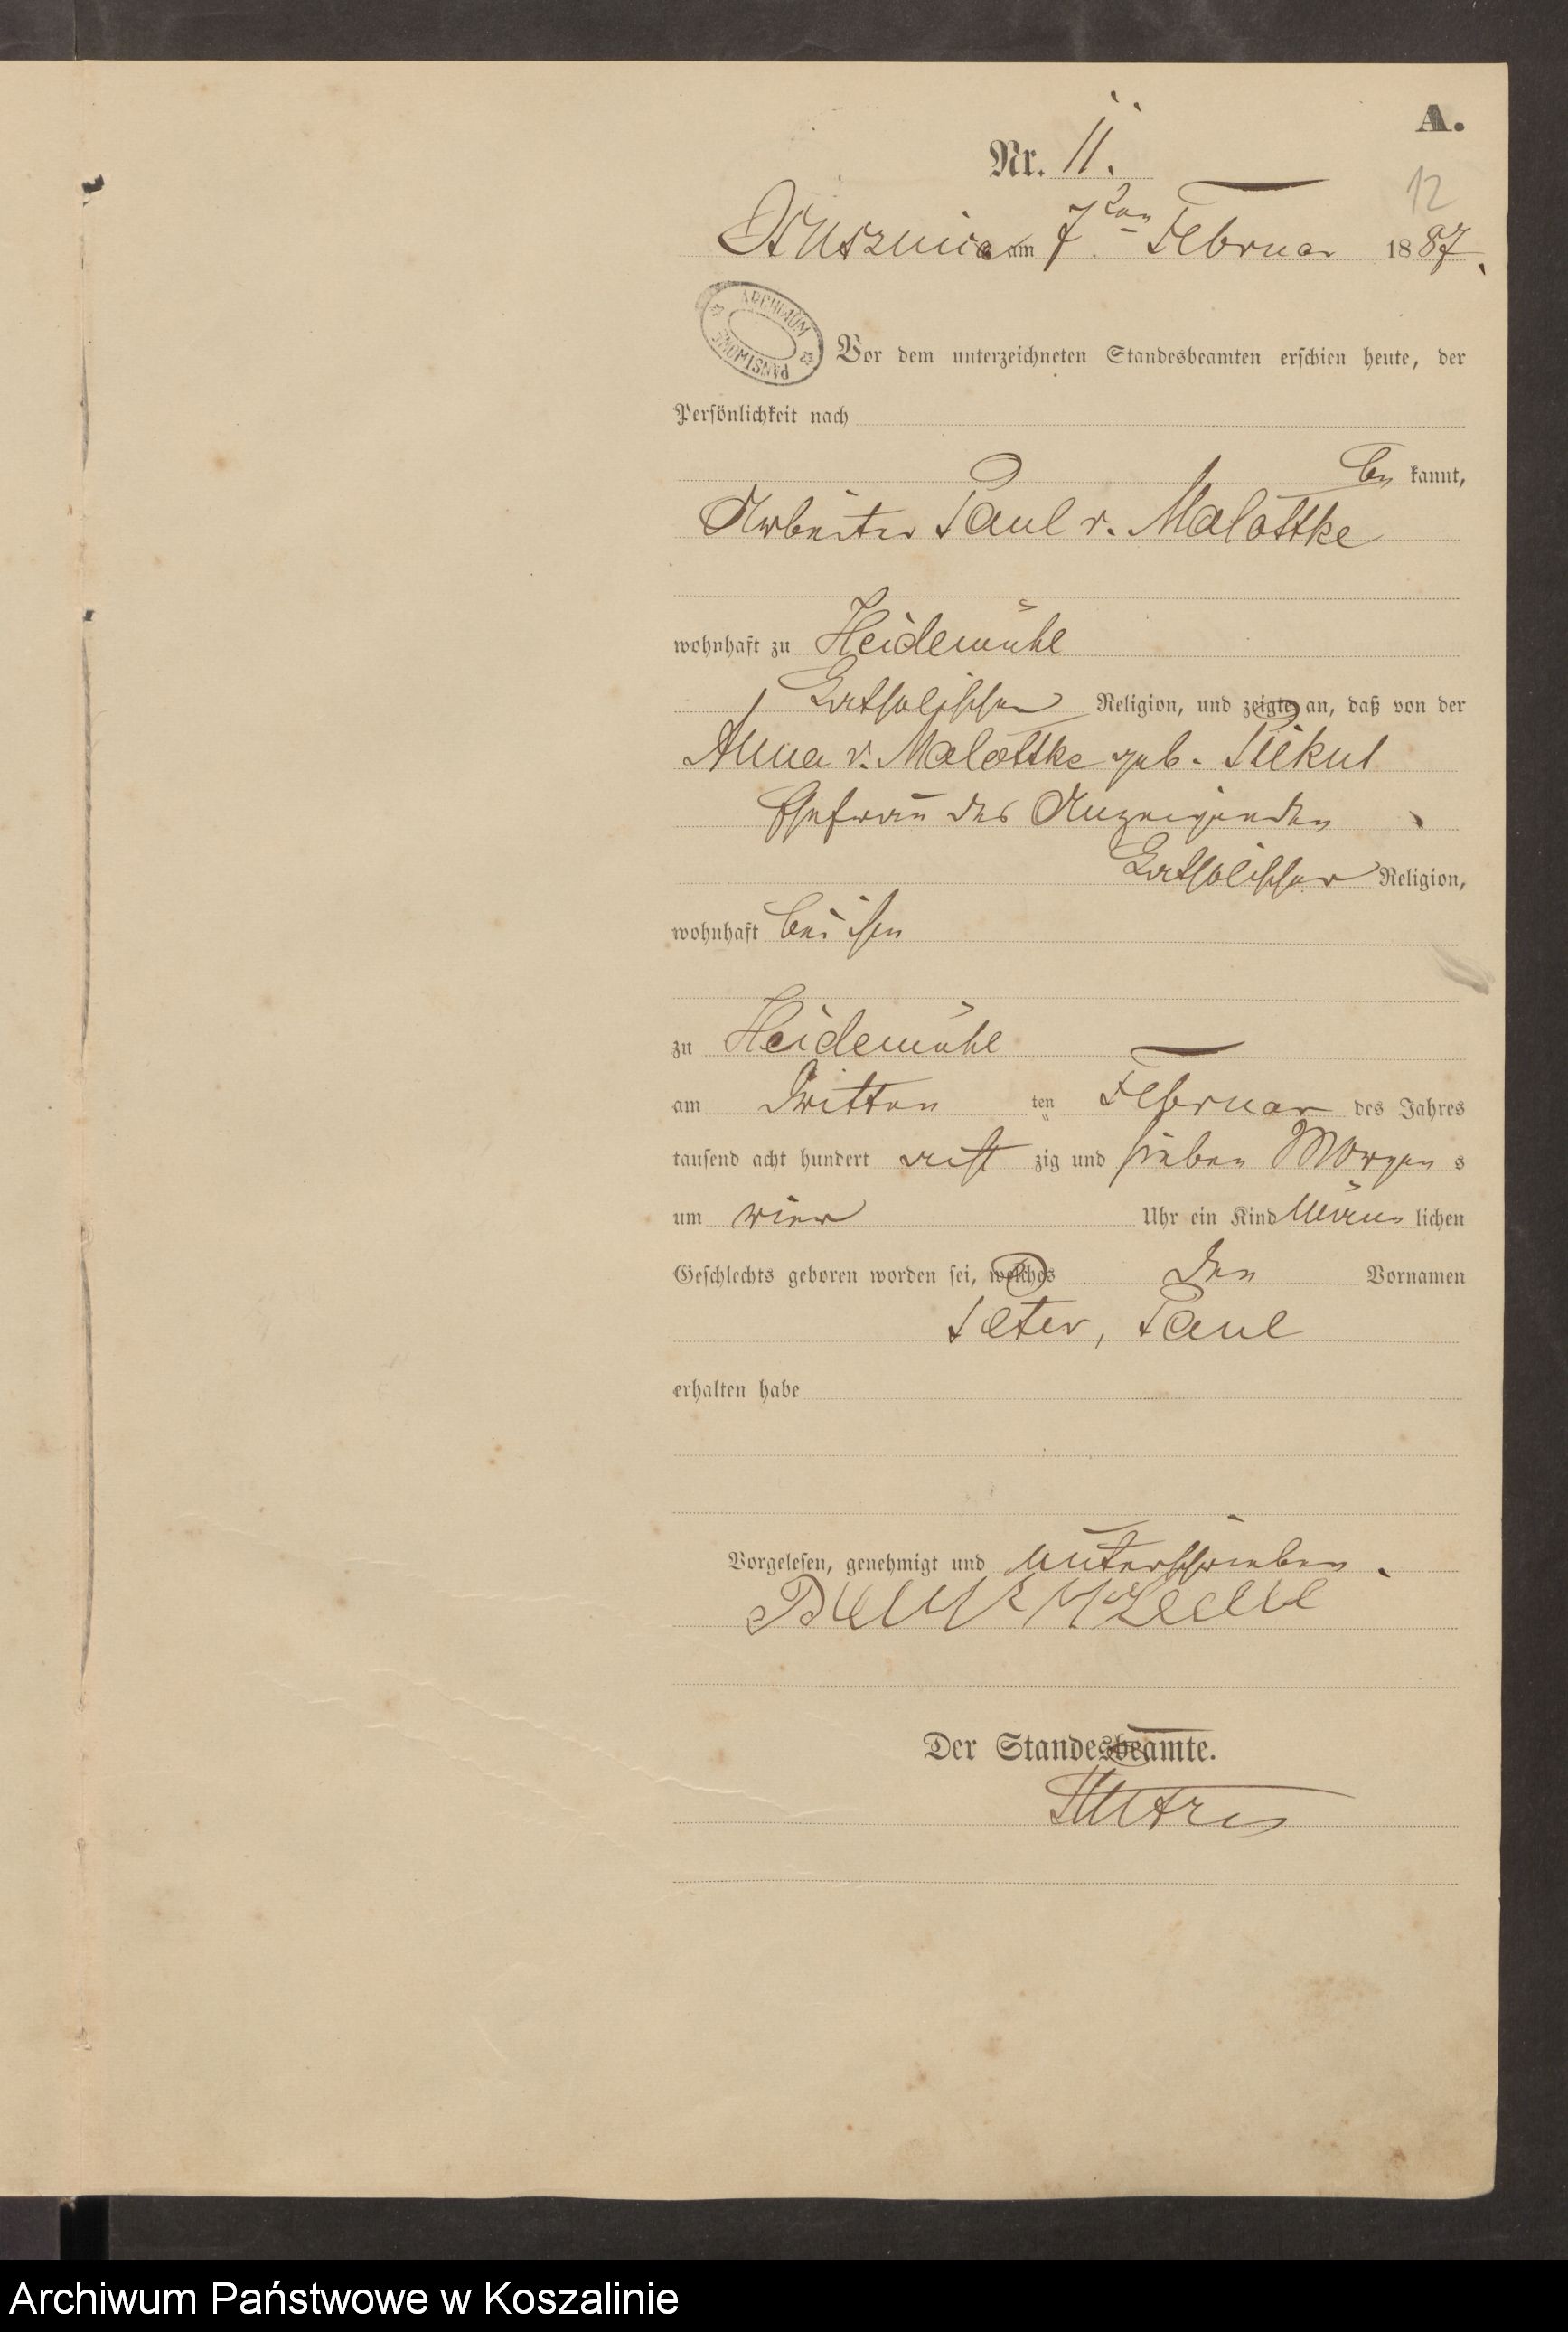 A.
Nr. 11.
12
am 7ten Februar 1887.
ARCHIWUM PAŃSTWOWE
Vor dem unterzeichneten Standesbeamten erschien heute, der
Persönlichkeit nach
be kannt,
Arbeiter Paul v. Malottke
wohnhaft zu Heidemühl
katholischer Religion, und zeigte an, daß von der
Anna v. Malottke geb. Piekut
Ehefrau des Anzeigenden
katholischer Religion,
wohnhaft bei ihm
zu Heidemühl
am Dritten ten Februar des Jahres
tausend acht hundert acht zig und sieben Morgen s
um vier Uhr ein Kind männ lichen
Geschlechts geboren worden sei, welches den Vornamen
Peter, Paul
erhalten habe
Vorgelesen, genehmigt und unterschrieben.
Der Standesbeamte.
Archiwum Państwowe w Koszalinie